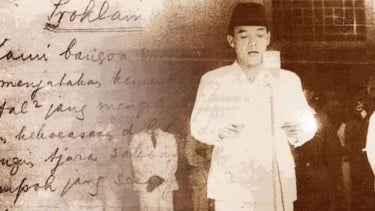 Proklam
Kami bangsa
menjatakan kemer
Hal² jang meng
kekoeasaan d
tjara saksa
mpoh jang se